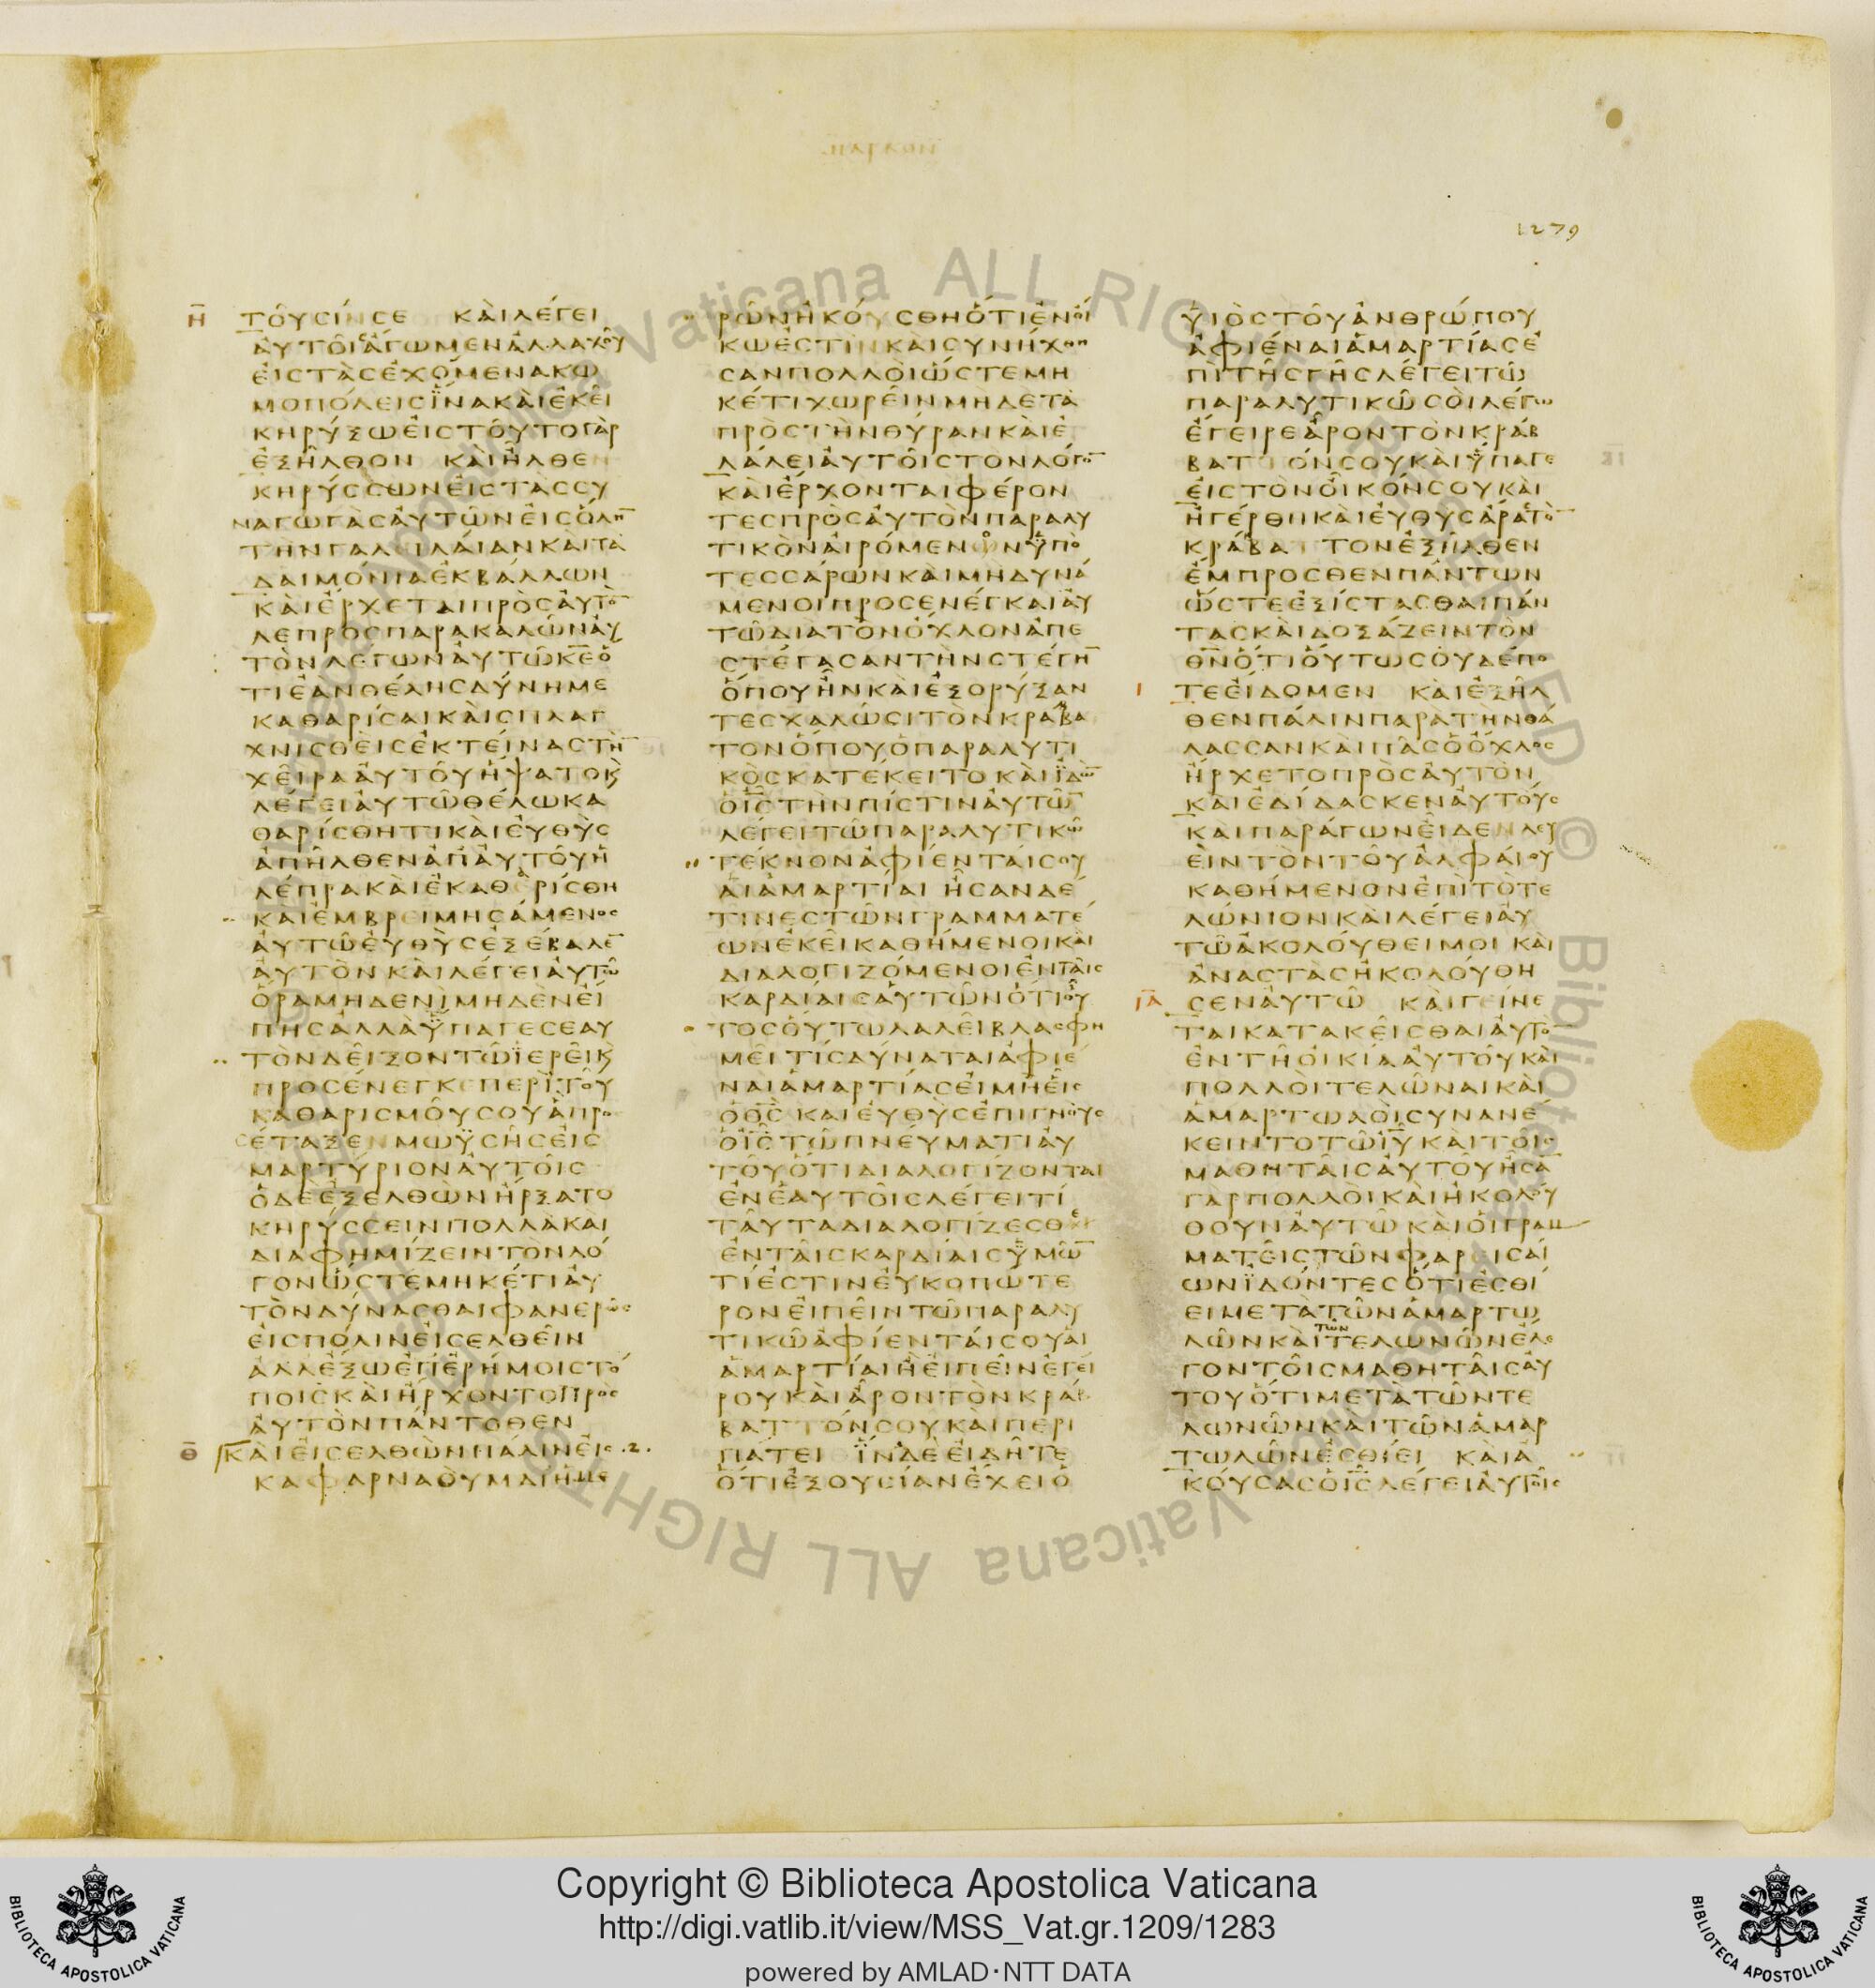 1279
Η ΤΟΥCΙΝCΕ ΚΑΙΛΕΓΕΙ
ΑΥΤΟΙCΑΓΩΜΕΝΑΛΛΑΧΟΥ
ΕΙCΤΑCΕΧΟΜΕΝΑΚΩ
ΜΟΠΟΛΕΙCΪΝΑΚΑΙΕΚΕΙ
ΚΗΡΥΞΩΕΙCΤΟΥΤΟΓΑΡ
ΕΞΗΛΘΟΝ ΚΑΙΗΛΘΕΝ
ΚΗΡΥCCΩΝΕΙCΤΑCCΥ
ΝΑΓΩΓΑCΑΥΤΩΝΕΙCΟΛΗ̅
ΤΗΝΓΑΛΕΙΛΑΙΑΝΚΑΙΤΑ
ΔΑΙΜΟΝΙΑΕΚΒΑΛΛΩΝ
ΚΑΙΕΡΧΕΤΑΙΠΡΟCΑΥΤΟ̅
ΛΕΠΡΟCΠΑΡΑΚΑΛΩΝΑΥ
ΤΟΝΛΕΓΩΝΑΥΤΩΚ̅Ε̅Ο
ΤΙΕΑΝΘΕΛΗCΔΥΝΗΜΕ
ΚΑΘΑΡΙCΑΙΚΑΙCΠΛΑΓ
ΧΝΙCΘΕΙCΕΚΤΕΙΝΑCΤΗ̅
ΧΕΙΡΑΑΥΤΟΥΗΨΑΤΟϏ
ΛΕΓΕΙΑΥΤΩΘΕΛΩΚΑ
ΘΑΡΙCΘΗΤΙΚΑΙΕΥΘΥC
ΑΠΗΛΘΕΝΑΠΑΥΤΟΥΗ
ΛΕΠΡΑΚΑΙΕΚΑΘΕΡΙCΘΗ
ΚΑΙΕΜΒΡΕΙΜΗCΑΜΕΝΟC
ΑΥΤΩΕΥΘΥCΕΞΕΒΑΛΕ̅
ΑΥΤΟΝΚΑΙΛΕΓΕΙΑΥΤΩ
ΟΡΑΜΗΔΕΝΙΜΗΔΕΝΕΙ
ΠΗCΑΛΛΑΫΠΑΓΕCΕΑΥ
ΤΟΝΔΕΙΞΟΝΤΩΪΕΡΕΙϏ
ΠΡΟCΕΝΕΓΚΕΠΕΡΙΤΟΥ
ΚΑΘΑΡΙCΜΟΥCΟΥΑΠΡΟ
CΕΤΑΞΕΝΜΩΫCΗCΕΙC
ΜΑΡΤΥΡΙΟΝΑΥΤΟΙC
ΟΔΕΕΞΕΛΘΩΝΗΡΞΑΤΟ
ΚΗΡΥCCΕΙΝΠΟΛΛΑΚΑΙ
ΔΙΑΦΗΜΙΖΕΙΝΤΟΝΛΟ
ΓΟΝΩCΤΕΜΗΚΕΤΙΑΥ
ΤΟΝΔΥΝΑCΘΑΙΦΑΝΕΡΩC
ΕΙCΠΟΛΙΝΕΙCΕΛΘΕΙΝ
ΑΛΛΕΞΩΕΠΕΡΗΜΟΙCΤΟ
ΠΟΙCΚΑΙΗΡΧΟΝΤΟΠΡΟC
ΑΥΤΟΝΠΑΝΤΟΘΕΝ
Θ ΚΑΙΕΙCΕΛΘΩΝΠΑΛΙΝΕΙC .2.
ΚΑΦΑΡΝΑΟΥΜΔΙΗΜΕ
ΡΩΝΗΚΟΥCΘΗΟΤΙΕΝΟΙ
ΚΩΕCΤΙΝΚΑΙCΥΝΗΧΘΗ
CΑΝΠΟΛΛΟΙΩCΤΕΜΗ
ΚΕΤΙΧΩΡΕΙΝΜΗΔΕΤΑ
ΠΡΟCΤΗΝΘΥΡΑΝΚΑΙΕ
ΛΑΛΕΙΑΥΤΟΙCΤΟΝΛΟΓΟ̅
ΚΑΙΕΡΧΟΝΤΑΙΦΕΡΟΝ
ΤΕCΠΡΟCΑΥΤΟΝΠΑΡΑΛΥ
ΤΙΚΟΝΑΙΡΟΜΕΝΟΝΫΠΟ
ΤΕCCΑΡΩΝΚΑΙΜΗΔΥΝΑ
ΜΕΝΟΙΠΡΟCΕΝΕΓΚΑΙΑΥ
ΤΩΔΙΑΤΟΝΟΧΛΟΝΑΠΕ
CΤΕΓΑCΑΝΤΗΝCΤΕΓΗ̅
ΟΠΟΥΗΝΚΑΙΕΞΟΡΥΞΑΝ
ΤΕCΧΑΛΩCΙΤΟΝΚΡΑΒΑ
ΤΟΝΟΠΟΥΟΠΑΡΑΛΥΤΙ
ΚΟCΚΑΤΕΚΕΙΤΟΚΑΙΪΔΩ̅
ΟΙ̅C̅ΤΗΝΠΙCΤΙΝΑΥΤΩ̅
ΛΕΓΕΙΤΩΠΑΡΑΛΥΤΙΚΩ
ΤΕΚΝΟΝΑΦΙΕΝΤΑΙCΟΥ
ΑΙΑΜΑΡΤΙΑΙ ΗCΑΝΔΕ
ΤΙΝΕCΤΩΝΓΡΑΜΜΑΤΕ
ΩΝΕΚΕΙΚΑΘΗΜΕΝΟΙΚΑΙ
ΔΙΑΛΟΓΙΖΟΜΕΝΟΙΕΝΤΑΙC
ΚΑΡΔΙΑΙCΑΥΤΩΝΟΤΙΟΥ
ΤΟCΟΥΤΩΛΑΛΕΙΒΛΑCΦΗ
ΜΕΙΤΙCΔΥΝΑΤΑΙΑΦΙΕ
ΝΑΙΑΜΑΡΤΙΑCΕΙΜΗΕΙC
ΟΘ̅C̅ ΚΑΙΕΥΘΥCΕΠΙΓΝΟΥC
ΟΙ̅C̅ΤΩΠΝΕΥΜΑΤΙΑΥ
ΤΟΥΟΤΙΔΙΑΛΟΓΙΖΟΝΤΑΙ
ΕΝΕΑΥΤΟΙCΛΕΓΕΙΤΙ
ΤΑΥΤΑΔΙΑΛΟΓΙΖΕCΘΕ
ΕΝΤΑΙCΚΑΡΔΙΑΙCΫΜΩ̅
ΤΙΕCΤΙΝΕΥΚΟΠΩΤΕ
ΡΟΝΕΙΠΕΙΝΤΩΠΑΡΑΛΥ
ΤΙΚΩΑΦΙΕΝΤΑΙCΟΥΑΙ
ΑΜΑΡΤΙΑΙΗΕΙΠΕΙΝΕΓΕΙ
ΡΟΥΚΑΙΑΡΟΝΤΟΝΚΡΑΒ
ΒΑΤΤΟΝCΟΥΚΑΙΠΕΡΙ
ΠΑΤΕΙ ΪΝΑΔΕΕΙΔΗΤΕ
ΟΤΙΕΞΟΥCΙΑΝΕΧΕΙΟ
ΥΙΟCΤΟΥΑΝΘΡΩΠΟΥ
ΑΦΙΕΝΑΙΑΜΑΡΤΙΑCΕ
ΠΙΤΗCΓΗCΛΕΓΕΙΤΩ
ΠΑΡΑΛΥΤΙΚΩCΟΙΛΕΓΩ
ΕΓΕΙΡΕΑΡΟΝΤΟΝΚΡΑΒ
ΒΑΤΤΟΝCΟΥΚΑΙΫΠΑΓΕ
ΕΙCΤΟΝΟΙΚΟΝCΟΥΚΑΙ
ΗΓΕΡΘΗΚΑΙΕΥΘΥCΑΡΑCΤΟ̅
ΚΡΑΒΑΤΤΟΝΕΞΗΛΘΕΝ
ΕΜΠΡΟCΘΕΝΠΑΝΤΩΝ
ΩCΤΕΕΞΙCΤΑCΘΑΙΠΑΝ
ΤΑCΚΑΙΔΟΞΑΖΕΙΝΤΟΝ
Θ̅Ν̅ΟΤΙΟΥΤΩCΟΥΔΕΠΟ
Ι ΤΕΕΙΔΟΜΕΝ ΚΑΙΕΞΗΛ
ΘΕΝΠΑΛΙΝΠΑΡΑΤΗΝΘΑ
ΛΑCCΑΝΚΑΙΠΑCΟΟΧΛΟC
ΗΡΧΕΤΟΠΡΟCΑΥΤΟΝ
ΚΑΙΕΔΙΔΑCΚΕΝΑΥΤΟΥC
ΚΑΙΠΑΡΑΓΩΝΕΙΔΕΝΛΕΥ
ΕΙΝΤΟΝΤΟΥΑΛΦΑΙΟΥ
ΚΑΘΗΜΕΝΟΝΕΠΙΤΟΤΕ
ΛΩΝΙΟΝΚΑΙΛΕΓΕΙΑΥ
ΤΩΑΚΟΛΟΥΘΕΙΜΟΙ ΚΑΙ
ΑΝΑCΤΑCΗΚΟΛΟΥΘΗ
ΙΑ CΕΝΑΥΤΩ ΚΑΙΓΕΙΝΕ
ΤΑΙΚΑΤΑΚΕΙCΘΑΙΑΥΤΟ̅
ΕΝΤΗΟΙΚΙΑΑΥΤΟΥΚΑΙ
ΠΟΛΛΟΙΤΕΛΩΝΑΙΚΑΙ
ΑΜΑΡΤΩΛΟΙCΥΝΑΝΕ
ΚΕΙΝΤΟΤΩΙ̅Υ̅ΚΑΙΤΟΙC
ΜΑΘΗΤΑΙCΑΥΤΟΥΗCΑ̅
ΓΑΡΠΟΛΛΟΙΚΑΙΗΚΟΛΟΥ
ΘΟΥΝΑΥΤΩ ΚΑΙΟΙΓΡΑΜ
ΜΑΤΕΙCΤΩΝΦΑΡΕΙCΑΙ
ΩΝΪΔΟΝΤΕCΟΤΙΕCΘΙ
ΕΙΜΕΤΑΤΩΝΑΜΑΡΤΩ
ΛΩΝΚΑΙΤΩΝΤΕΛΩΝΩΝΕΛΕ
ΓΟΝΤΟΙCΜΑΘΗΤΑΙCΑΥ
ΤΟΥΟΤΙΜΕΤΑΤΩΝΤΕ
ΛΩΝΩΝΚΑΙΤΩΝΑΜΑΡ
ΤΩΛΩΝΕCΘΙΕΙ ΚΑΙΑ
ΚΟΥCΑCΟΙ̅C̅ΛΕΓΕΙΑΥΤΟΙC
Vaticana ALL RIGHTS RESERVED © Biblioteca Apostolica Vaticana ALL RIGHTS
Copyright © Biblioteca Apostolica Vaticana
http://digi.vatlib.it/view/MSS_Vat.gr.1209/1283
powered by AMLAD·NTT DATA
BIBLIOTECA APOSTOLICA VATICANA
BIBLIOTECA APOSTOLICA VATICANA